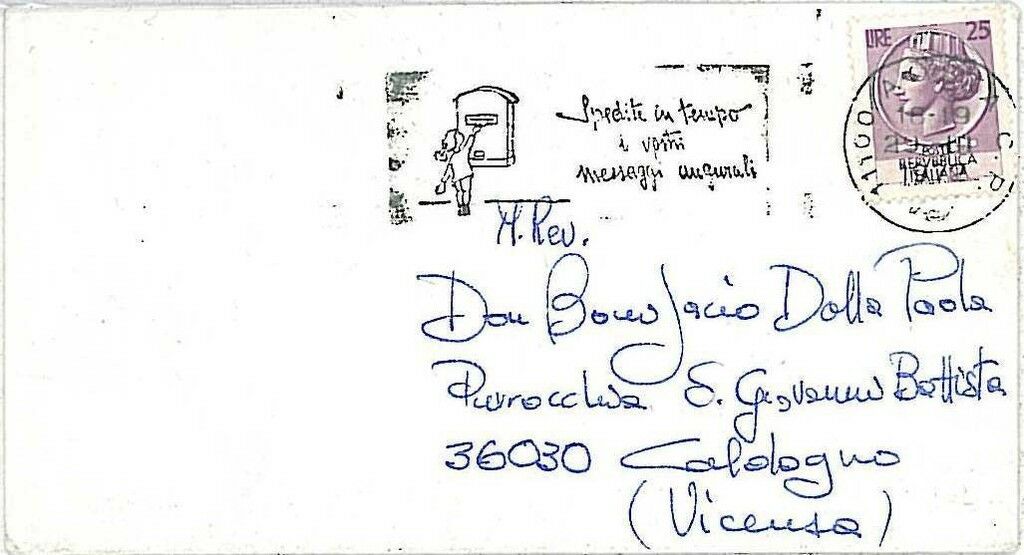 LIRE 25
Spedite in tempo
i vostri
messaggi augurali
11100 AOSTA C.P.
18-19
POSTE
REPVBBLICA
ITALIANA
M. Rev.
Don Bonifacio Dalla Paola
Parrocchia S. Giovanni Battista
36030 Caldogno
(Vicenza)